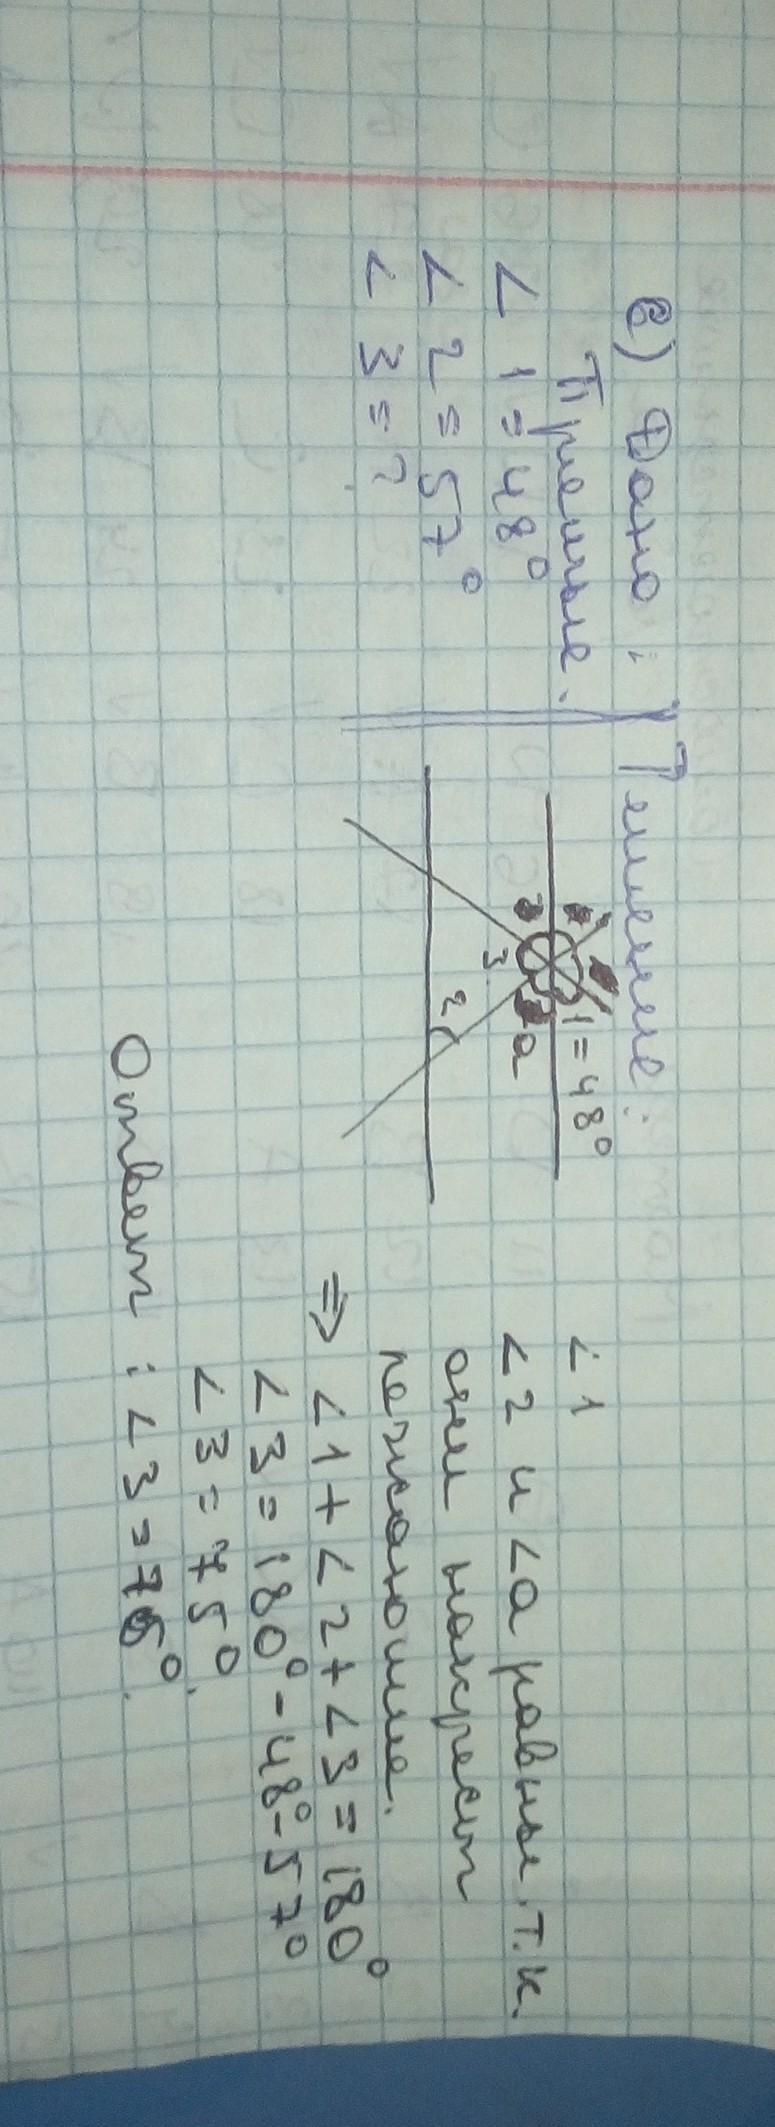 в) Дано:
Прямые.
∠ 1 = 48°
∠ 2 = 57°
∠ 3 = ?
Решение:
1 = 48°
а
3
2
∠ 1
∠ 2 и ∠а равные, т.к.
они накрест
лежащие.
⇒ ∠1 + ∠2 + ∠3 = 180°
∠3 = 180° - 48° - 57°
∠3 = 75°.
Ответ: ∠3 = 75°.